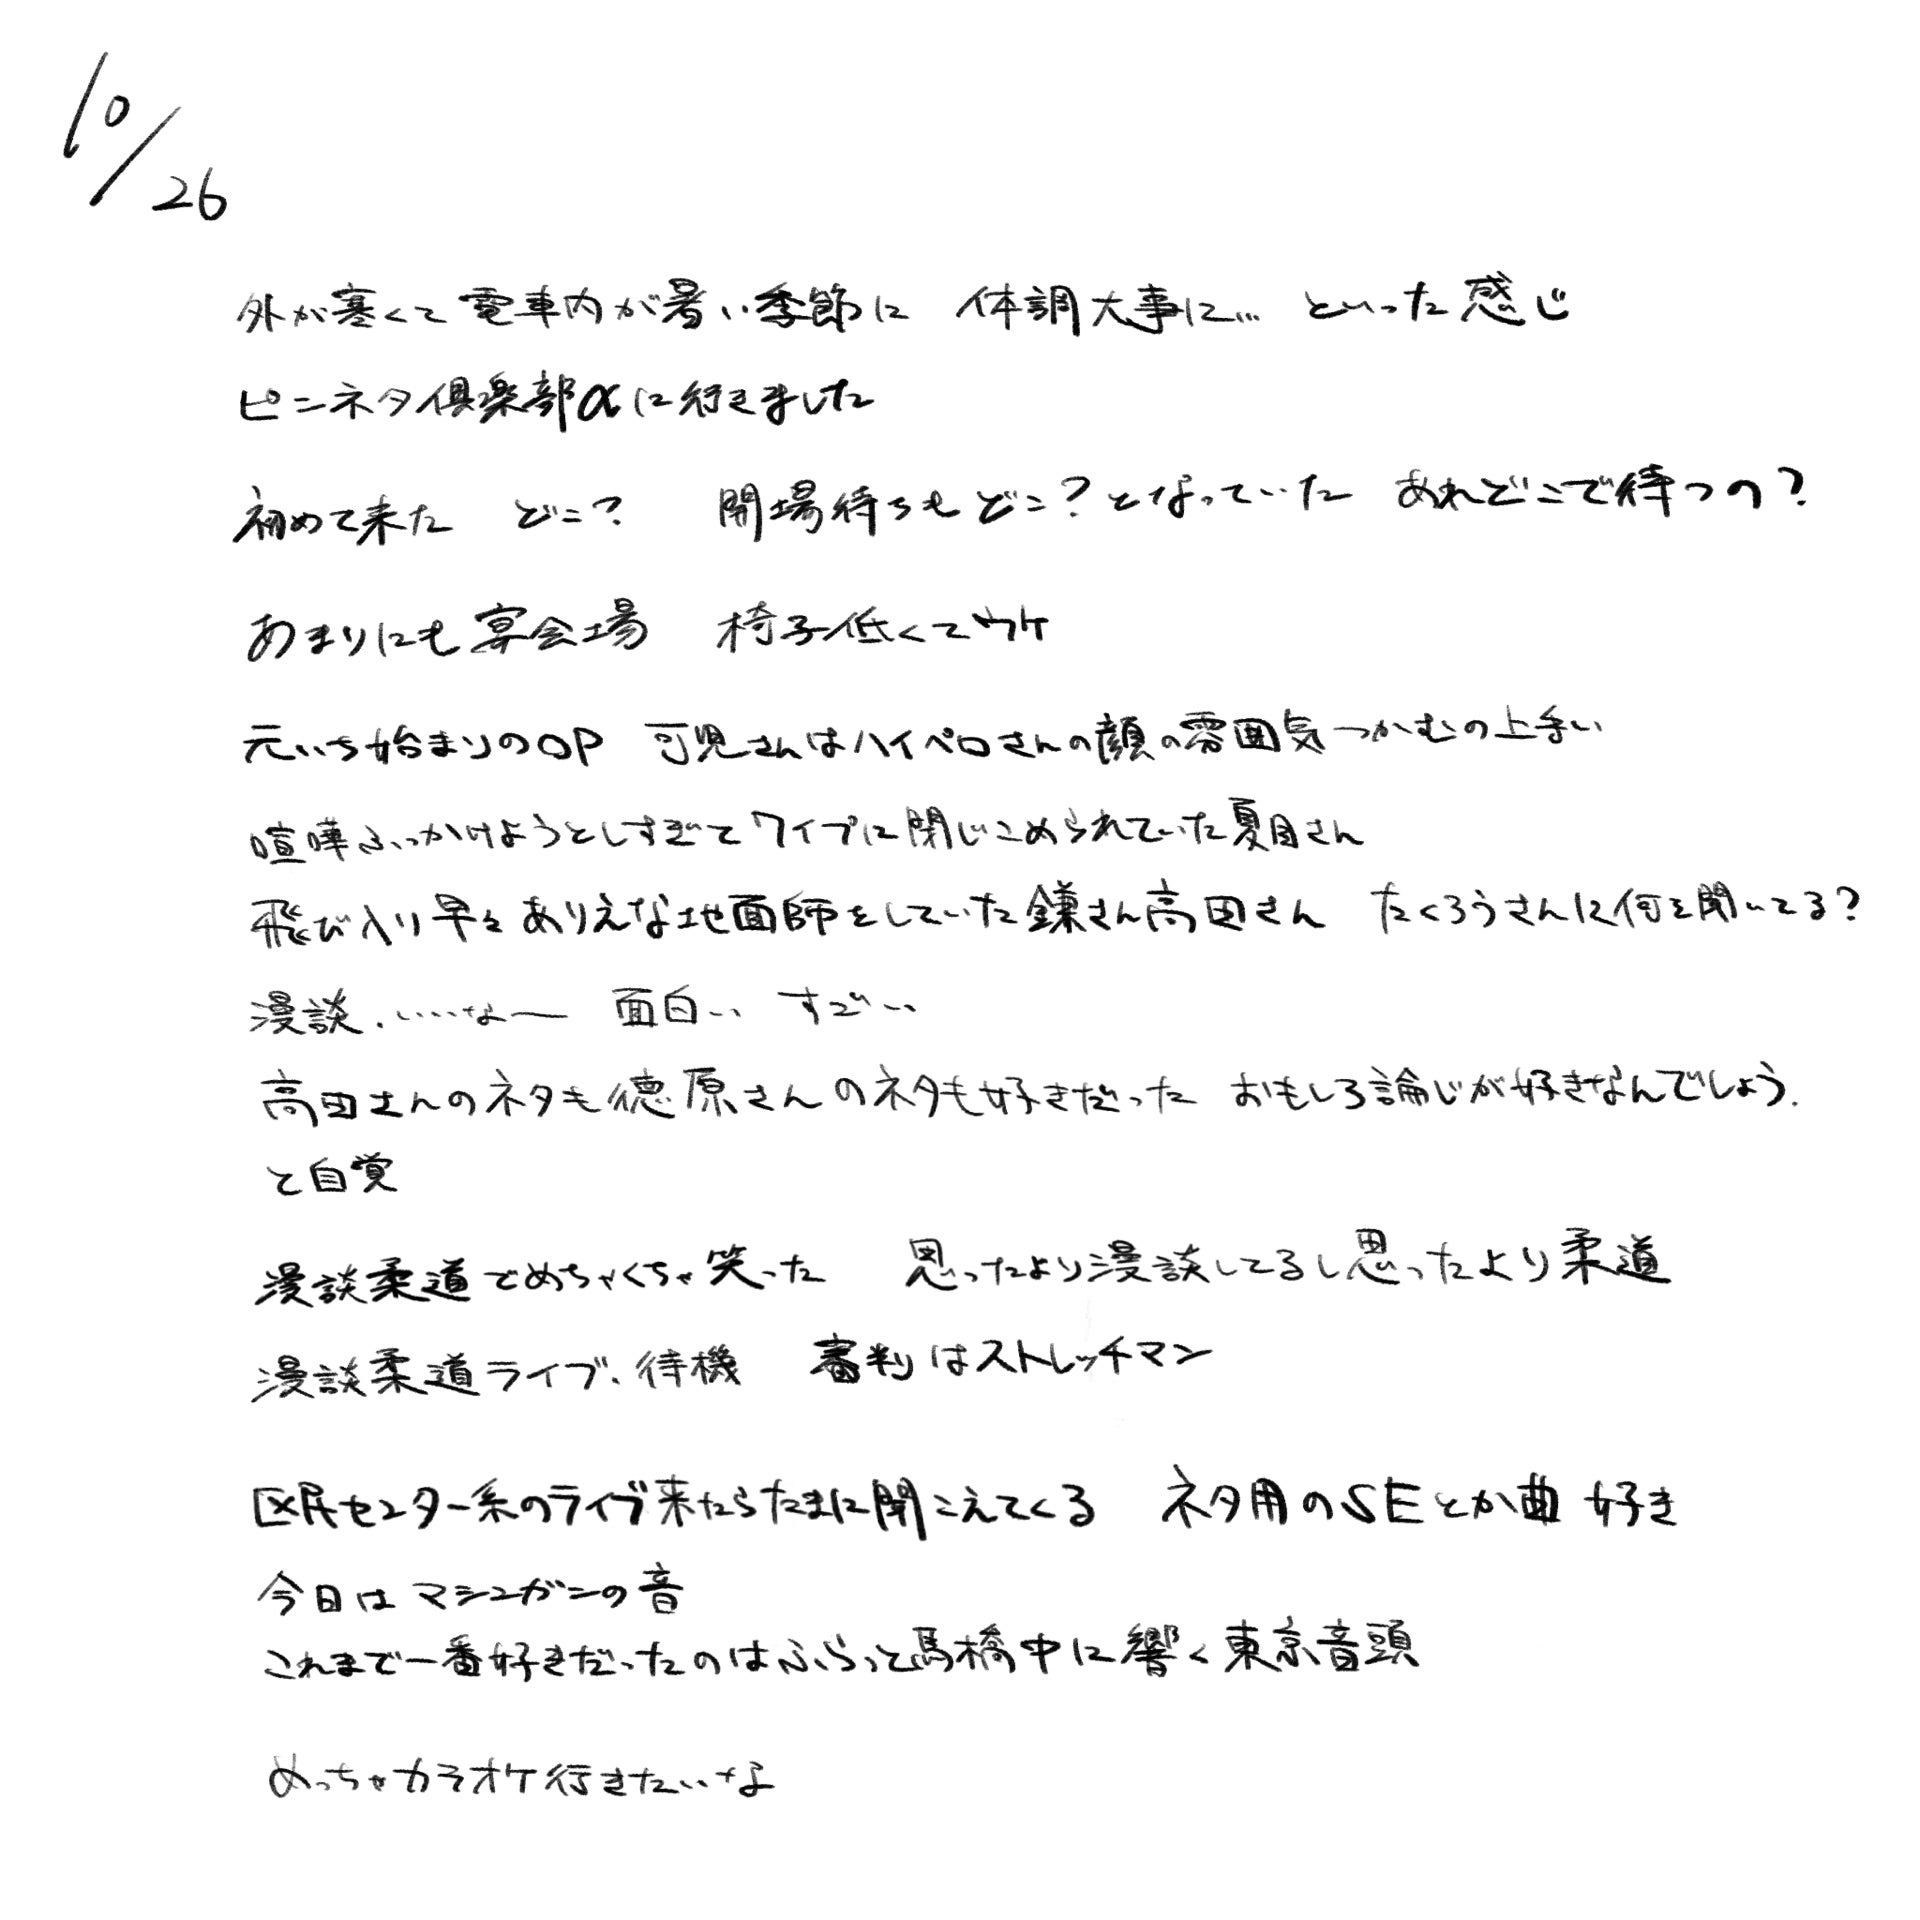 10/26
外が寒くて電車内が暑い季節に 体調大事に… といった感じ
ピンネタ倶楽部αに行きました
初めて来た どこ? 開場待ちもどこ?となっていた あれどこで待つの?
あまりにも宴会場 椅子低くてウケ
元いち始まりのOP 可児さんはハイペロさんの顔の雰囲気つかむの上手い
喧嘩ふっかけようとしすぎてワイプに閉じこめられていた夏目さん
飛び入り早々ありえな地面師をしていた鎌さん高田さん たくろうさんに何を聞いてる?
漫談.いいなー 面白い すごい
高田さんのネタも徳原さんのネタも好きだった おもしろ論じが好きなんでしょう.
と自覚
漫談柔道でめちゃくちゃ笑った 思ったより漫談してるし思ったより柔道
漫談柔道ライブ、待機 審判はストレッチマン
区民センター系のライブ来たらたまに聞こえてくる ネタ用のSEとか曲 好き
今日はマシンガンの音
これまで一番好きだったのはふらっと馬橋中に響く東京音頭
めっちゃカラオケ行きたいな